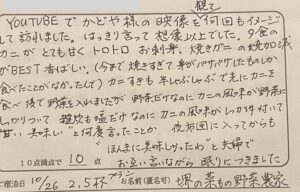 観て
YOUTUBEでかどや様の映像を何回もイメージ
して訪れました。はっきり言って想像以上でした。夕食の
カニがとても甘くトロトロ お刺身、焼きガニの焼加減
がBEST 香ばしい。(今まで焼きすぎて身がパサパサしたものしか
食べたことがなかったんで) カニすきも半しゃぶしゃぶで先にカニを
食べ後で野菜を入れましたが野菜だけなのにカニの風味が野菜に
しっかりついて 雑炊も塩だけなのにカニの風味がしっかり付いて
"甘い 美味しい"と何度言ったことか 夜布団に入ってからも
"ほんまに美味しかったわ"と夫婦で
お互い言いながら眠りにつきました
10点満点で 10 点
ご宿泊日 10/26 2.5杯プラン お名前(匿名可) 堺の菜もの野菜農家